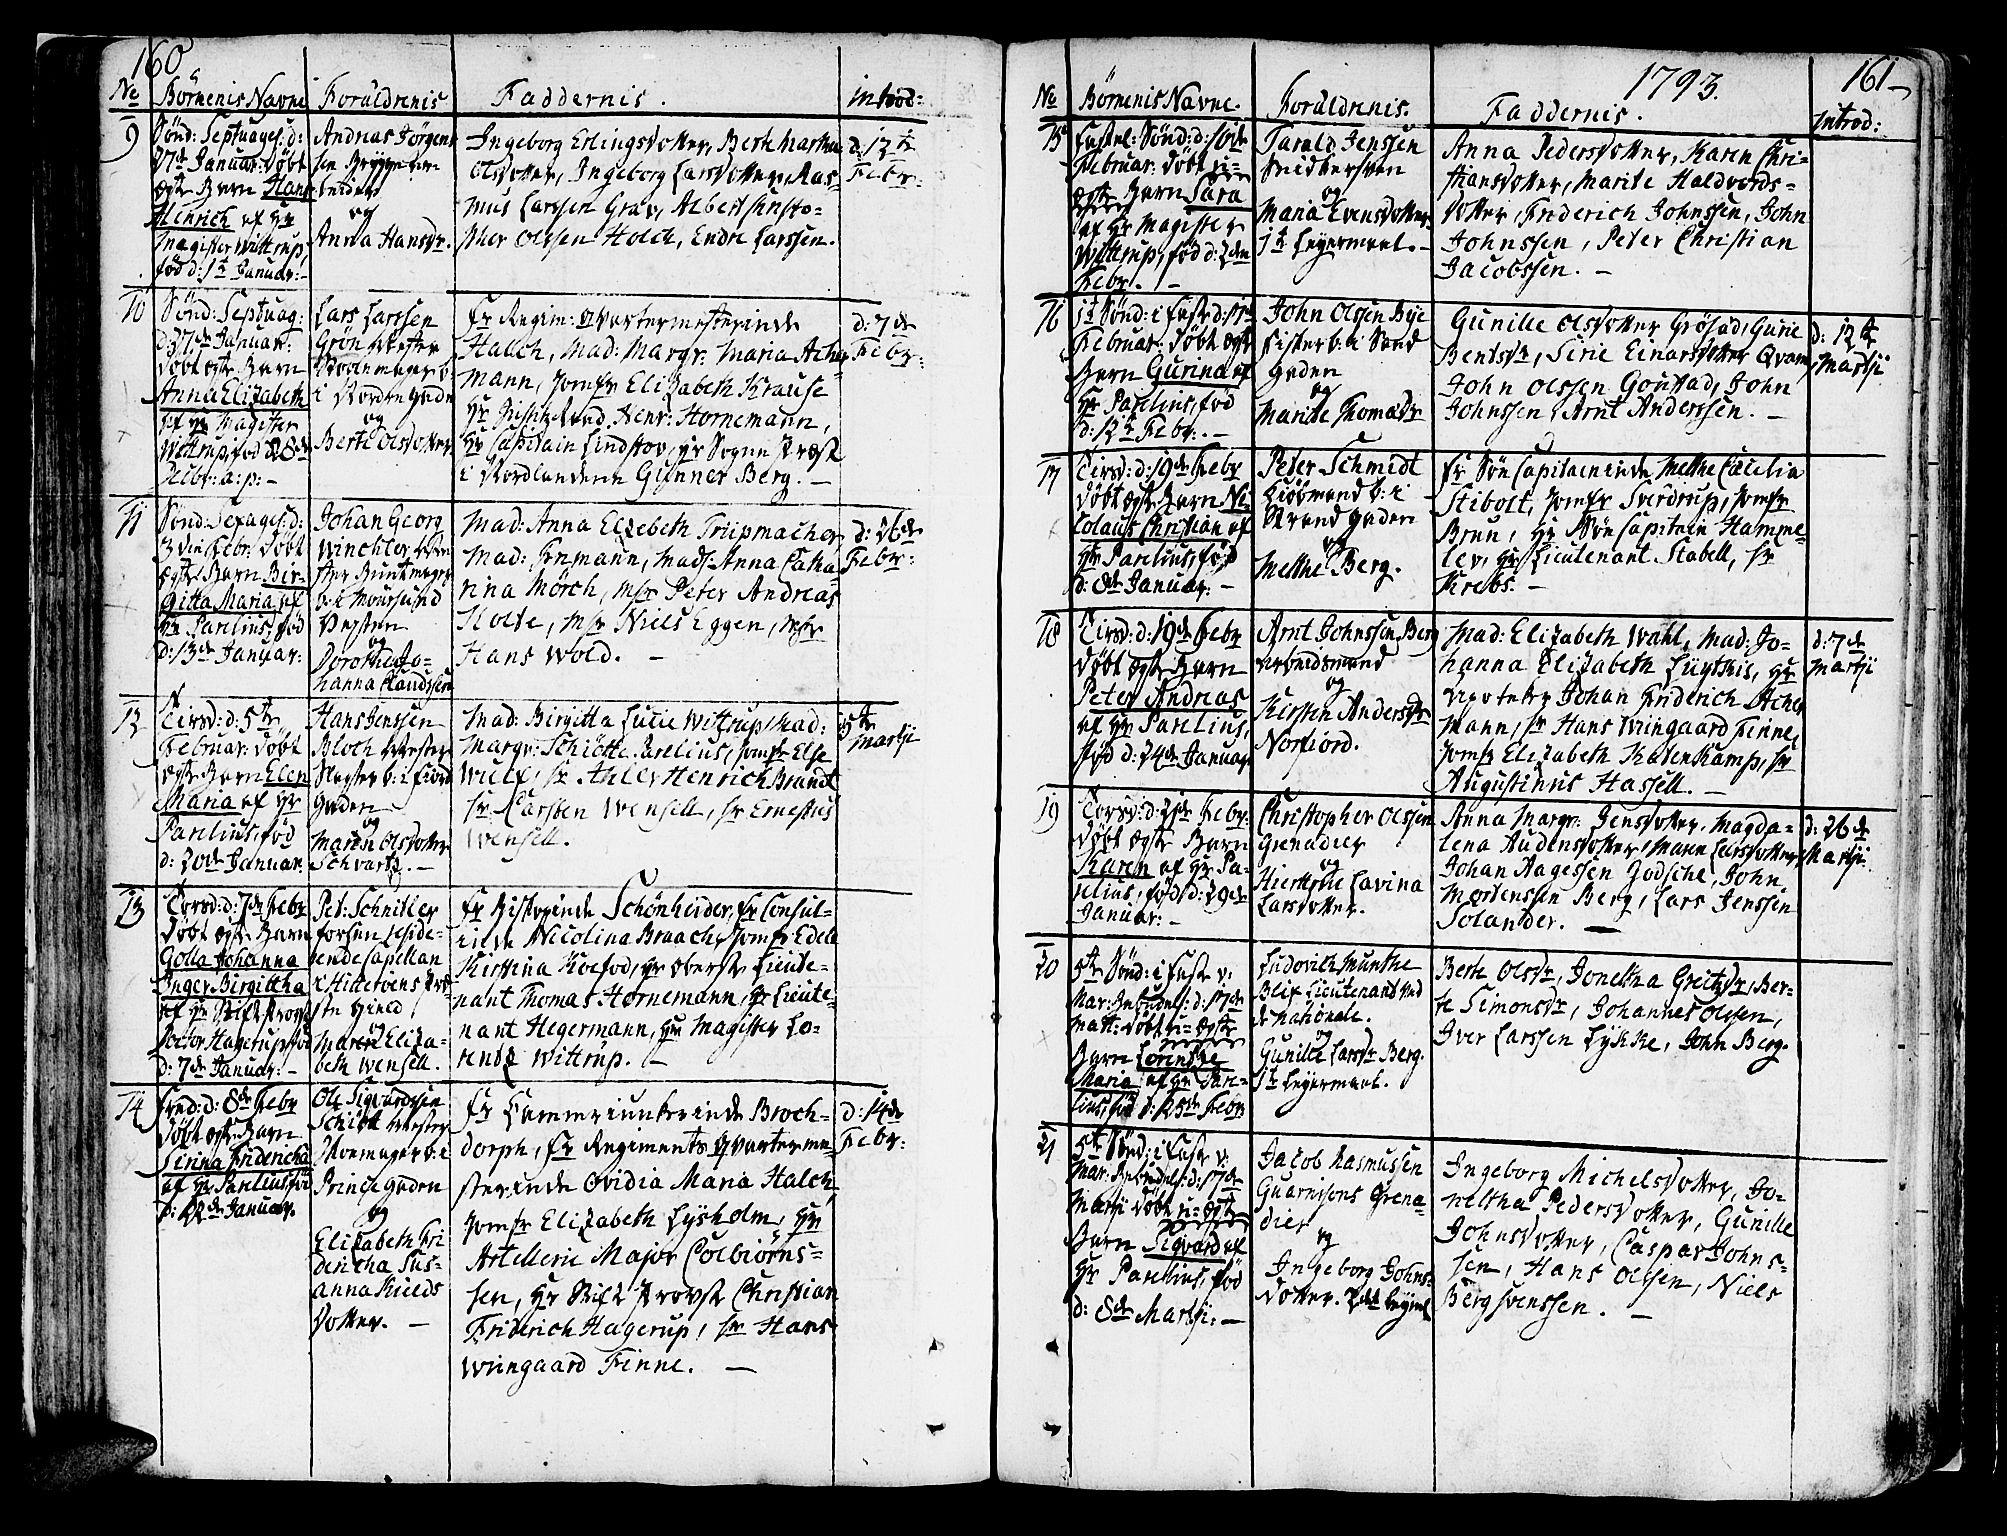 160
No
Börnenis Navne
Forældrenis
Faddernis.
introd:
9
Sönd: Septuages: d:
27de Januar: döbt
ægte Barn Hans
Henrich af Hr
Magister Wittrup,
föd d: 1te Januar: -
Andreas Jörgen-
sen Brygger
og
Anna Hansdr.
Ingeborg Erlingsdotter, Berth Martha
Olsdotter, Ingeborg Larsdotter, Ras-
mus Larssen Grav, Albert Christo-
pher Olssen Holck, Endre Larssen.
d: 12te
Febr:
10
Sönd: Septuag:
d: 27de Januar:
döbt ægte Barn
Anna Elizabeth
af Hr Magister
Wittrup, föd d: 28de
Decbr: a: p: -
Lars Larssen
Grön Mester
i Nordre Gaden
og
Berte Olsdotter
Fr Regim: Qvartermesterinde
Halck, Mad: Margr: Maria Ache
mann, Jomfr Elizabeth Krause
Henr: Hornemann,
Hr Capitain Lindstov, Hr Sogne Præst
i Nordlandene Gunner Berg. -
d: 7de
Febr:
11
Sönd: Sexages: d:
3die Febr: döbt
ægte Barn Bir-
gitta Maria af
Hr Parelius, föd
d: 13de Januar:
Johan Georg
Winckler Me-
ster Buntmager
og
Dorothea Jo-
hanna Claudssen
Mad: Anna Elzebeth Triipmacher
Mad: Enmann, Mads: Anna Catha
rina Mörch, Msr Peter Andreas
Holte, Msr Niels Eggen, Msr
Hans Wold. -
d: 26de
Febr:
12
Tirsd: d: 5te
Februar: döbt
ægte Barn Elen
Maria af Hr
Parelius, föd
d: 20de Januar.
Hans Jenssen
Bloch Mester
Slagter b: i Fiord
Gaden
og
Maren Olsdotter
Schvartz. -
Mad: Birgitta Lucie Wittrup, Mad:
Margr: Schiötte Parelius, Jomfr Else
Wulf, Sr Ahler Henrich Brandt
Sr Carsten Wensell, Sr Ernestus
Wensell.
5te
Martji
13
Torsd: d: 7de Febr
döbt ægte Barn
Golla Johanna
Inger Birgittha
af Hr Stift Provst
Doctor Hagerup, föd
d: 7de Januar: -
Pet: Schnitler
forsen reside-
rende Capellan
i Hitterens Præ-
ste Gield
og
Maren Eliza-
beth Wensell.
Fr Biskopinde Schönheider, Fr Consul-
inde Nicolina Braach, Jomfr Edell
Kirstina Koefod, Hr Oberst Lieute-
nant Thomas Hornemann, Hr Lieute-
nant Hegermann, Hr Magister Lo-
rentz Wittrup. -
14
Fred: d: 8de Febr
döbt ægte Barn
Sirina Fridericha
af Hr Parelius, föd
d: 22de Januar.
Ole Sigvardssen
Schiött Mester
Skoemager b: i
Prinse Gaden
og
Elizabeth Fri
dericha Sus-
anna Kields
dotter. -
Fr Cammeriunkerinde Broch-
dorph, Fr Regiments Qvarterme
sterinde Ovidia Maria Halck
Jomfr Elizabeth Lysholm, Hr
Artellerie Major Colbiörns-
sen, Hr Stift Provst Christian
Friderich Hagerup, Sr Hans
Wiingaard Finne. -
d: 14de
Febr:
1793.
161
No
Börnenis Navne.
Forældrenis.
Faddernis.
introd:
15
Fastel: Sönd: d: 10de
Februar: döbt u-
ægte Barn Sara
af Hr Magister
Wittrup, föd d: 2den
Febr. -
Tarald Jenssen
Snidkersven
og
Maria Evensdotter
1te Leyermaal. -
Anna Pedersdotter, Karen Chri-
stiansdotter, Marite Haldvords-
dotter, Friderich Johnssen, John
Johnssen, Peter Christian
Jacobssen. -
16
1te Sönd: i Faste d: 17de
Februar: döbt ægte
Barn Gurina af
Hr Parelius, föd
d: 12te Febr. -
John Olssen Bye
Fisker b: i Sand
Gaden
og
Marite Thomasdr
Gunille Olsdotter Grösad, Gurie
Bentsdr, Sirie Einarsdotter Qvam
John Olssen Goustad, John
Johnssen, Arnt Anderssen. -
d: 12te
Martji
17
Tirsd: d: 19de Febr
döbt ægte Barn Ni-
colaus Christian af
Hr Parelius, föd
d: 8de Januar: -
Peter Schmidt
Kiöbmand b: i
Strand Gaden
og
Mette Berg.
Fr Söe Capitaininde Mette Cæcilia
Stibolt, Jomfr Sverdrup, Jomfr
Brun, Hr Söe Capitain Hamme-
lev, Hr Lieutenant Stabell, Sr
Krebs. -
18
Tirsd: d: 19de Febr
döbt ægte Barn
Peter Andreas
af Hr Parelius,
föd d: 24de Januar
Arnt Johnssen Berg
Arbeidsmand
og
Kirsten Andersdr
Norfiord.
Mad: Elizabeth Wahl, Mad: Jo-
hanna Elizabeth Luytkis, Hr
Apoteker Johan Friderich Acher
mann, Sr Hans Wiingaard Finne,
Jomfr Elizabeth Katenkamp, Sr
Augustinus Hassell. -
d: 7de
Martji
19
Torsd: d: 21de Febr:
döbt ægte Barn
Karen af Hr Pa-
relius, föd d: 29de
Januar: -
Christopher Olssen
Grenadeer
og
Lavina
Larsdotter.
Anna Margr: Jensdotter, Magda-
lena Audensdotter, Maren Larsdotter,
Johan Aagessen Godsche, John
Mortenssen Berg, Lars Jenssen
Solander. -
d: 26de
Martji
20
5te Sönd: i Faste v:
Mar: Bebudels: d: 17de
Mart: döbt u-ægte
Barn Lorentze
Maria af Hr Pare-
lius, föd d: 25de Febr
Ludovich Munthe
Lieutenant ved
de nationale.
og
Gunille Larsdr Berg.
1te Leyermaal.
Berte Olsdr, Jonetha Greitzdr, Ber-
te Simonsdr, Johannes Olssen,
Iver Larssen Lykke, John Berg.
21
5te Sönd: i Faste v:
Mar: Bebudels: d: 17de
Martji döbt u-ægte
Barn Sigvard af
Hr Parelius, föd
d: 8de Martji: -
Jacob Rasmussen
Guarnisons Grena-
dier
og
Ingeborg Johns-
dotter. 2det Leyerml
Ingeborg Michelsdotter, Jo-
netha Pedersdotter, Gunille
Johnsdotter, Caspar Johns-
sen, Hans Olssen, Niels
Bergsvenssen. -